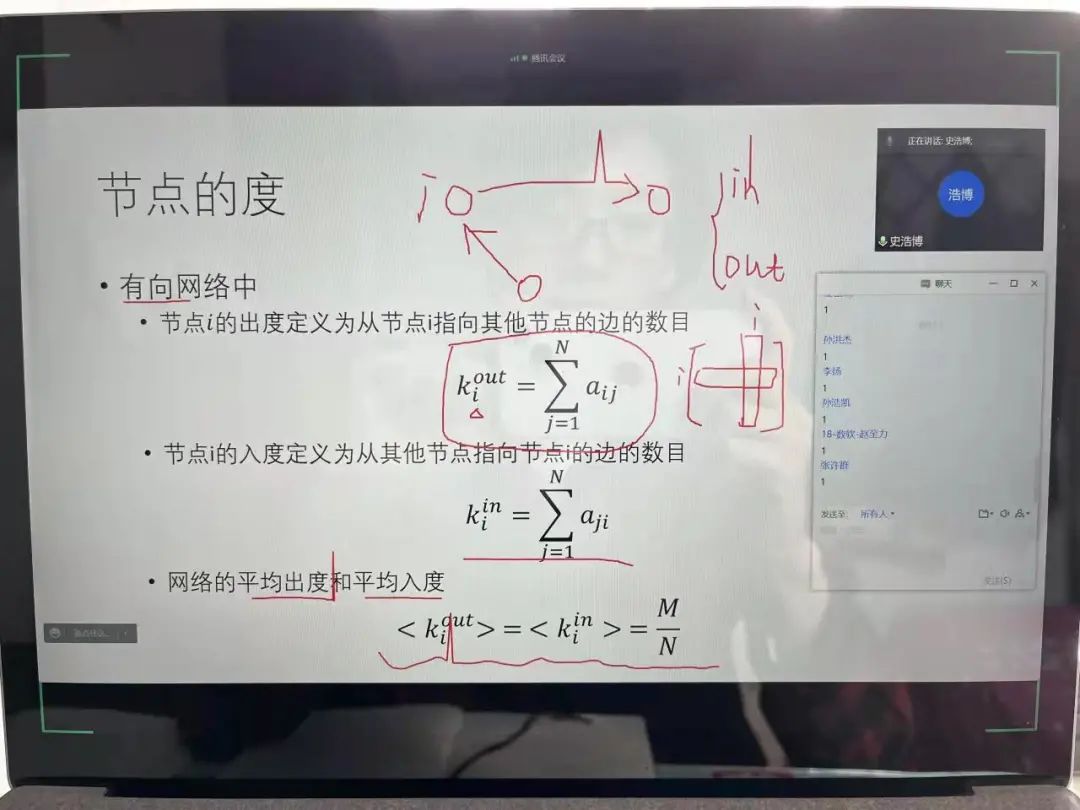 腾讯会议
正在讲话: 史浩博;
浩博
史浩博
节点的度
j
in
out
• 有向网络中
• 节点i的出度定义为从节点i指向其他节点的边的数目
k_i^{out} = \sum_{j=1}^{N} a_{ij}
i
i
• 节点i的入度定义为从其他节点指向节点i的边的数目
k_i^{in} = \sum_{j=1}^{N} a_{ji}
• 网络的平均出度和平均入度
< k_i^{out} > = < k_i^{in} > = \frac{M}{N}
聊天
1
孙洪杰
1
李扬
1
孙浩凯
1
18-数软-赵至力
1
张许群
1
发送至: 所有人
发送(S)